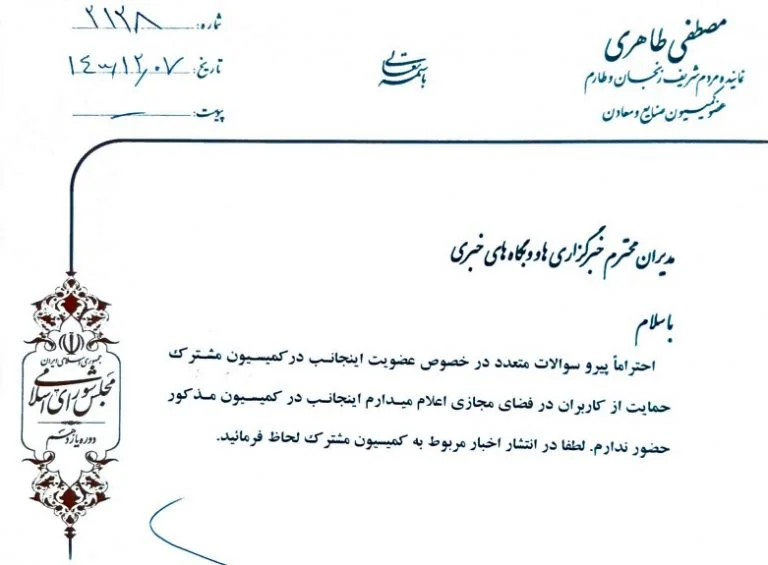 مصطفی طاهری
نماینده مردم شریف زنجان و طارم
عضو کمیسیون صنایع و معادن
باسمه تعالی
شماره: ۳۱۲۸
تاریخ: ۱۴۰۰/۱۲/۰۷
پیوست:
مدیران محترم خبرگزاری ها و وبگاه های خبری
با سلام
احتراماً پیرو سوالات متعدد در خصوص عضویت اینجانب در کمیسیون مشترک
حمایت از کاربران در فضای مجازی اعلام میدارم اینجانب در کمیسیون مذکور
حضور ندارم. لطفا در انتشار اخبار مربوط به کمیسیون مشترک لحاظ فرمائید.
جمهوری اسلامی ایران
مجلس شورای اسلامی
دوره یازدهم